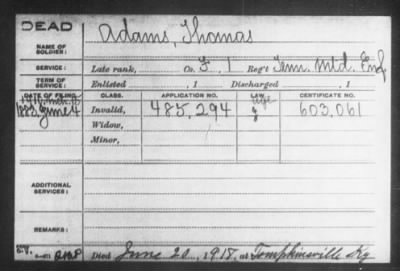 DEAD
NAME OF SOLDIER: Adams, Thomas
SERVICE: Late rank, Co. F, 1 Reg't Tenn. Mtd. Inf
TERM OF SERVICE: Enlisted , 1 Discharged , 1
DATE OF FILING. CLASS. APPLICATION NO. LAW. CERTIFICATE NO.
1883, June 4 Invalid, 485,294 603,061
Widow,
Minor,
ADDITIONAL SERVICES:
REMARKS:
Died June 20, 1918, at Tompkinsville Ky